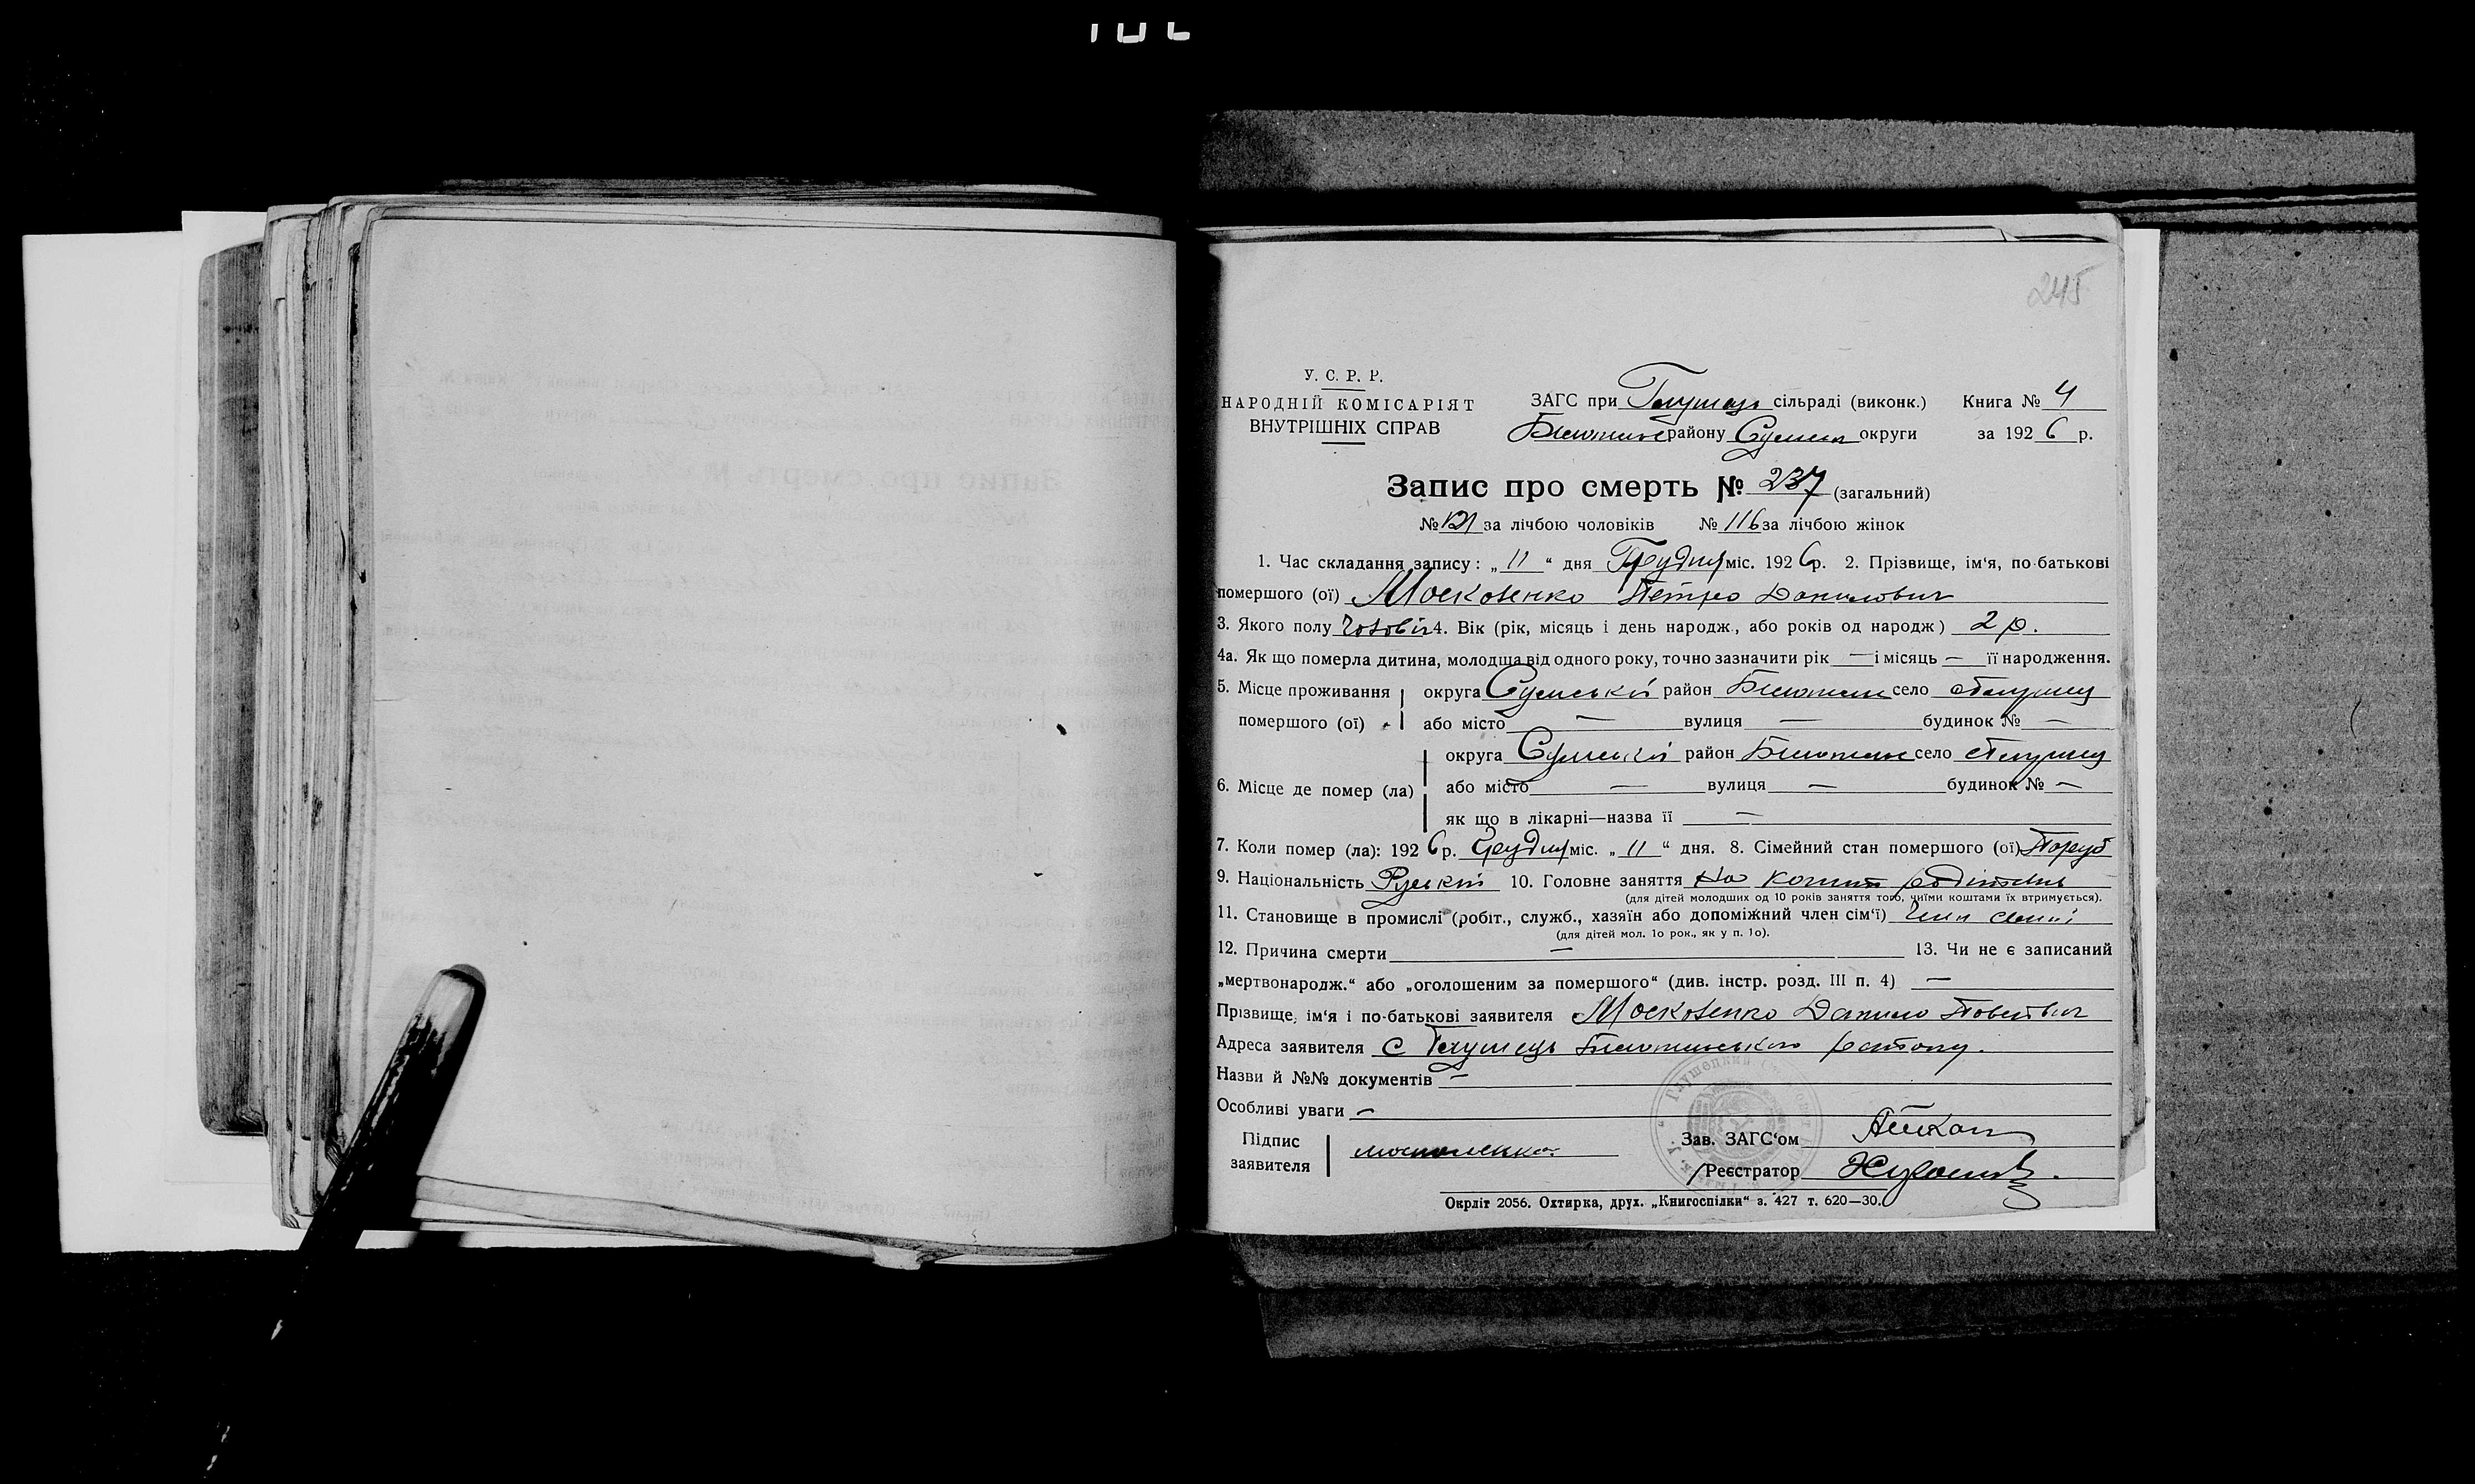 245
У. С. Р. Р.
НАРОДНІЙ КОМІСАРІЯТ
ВНУТРІШНІХ СПРАВ
ЗАГС при сільраді (виконк.) Книга № 4
району округи за 1926 р.
Запис про смерть № 237 (загальний)
№ 121 за лічбою чоловіків № 116 за лічбою жінок
1. Час складання запису: „11“ дня Грудня міс. 1926 р. 2. Прізвище, ім‘я, по-батькові
помершого (ої) Московенко Петро Данилович
3. Якого полу 4. Вік (рік, місяць і день народж., або років од народж) 2 р.
4а. Як що померла дитина, молодша від одного року, точно зазначити рік — і місяць — її народження.
5. Місце проживання округа Сумської район село
помершого (ої) або місто — вулиця — будинок № —
округа Сумської район село
6. Місце де помер (ла) або місто — вулиця — будинок № —
як що в лікарні—назва її —
7. Коли помер (ла): 1926 р. Грудня міс. „11“ дня. 8. Сімейний стан помершого (ої)
9. Національність Руський 10. Головне заняття На кошти родітелів
(для дітей молодших од 10 років заняття того, чиїми коштами їх втримується).
11. Становище в промислі (робіт., служб., хазяїн або допоміжний член сім‘ї) член семиї
(для дітей мол. 1о рок., як у п. 1о).
12. Причина смерти — 13. Чи не є записаний
„мертвонародж.“ або „оголошеним за помершого“ (див. інстр. розд. III п. 4) —
Прізвище, ім‘я і по-батькові заявителя Московенко Данило
Адреса заявителя с района.
Назви й №№ документів —
Особливі уваги —
Підпис
заявителя
Зав. ЗАГС‘ом
Реєстратор
Окрліт 2056. Охтирка, друх. „Книгоспілки“ з. 427 т. 620—30.